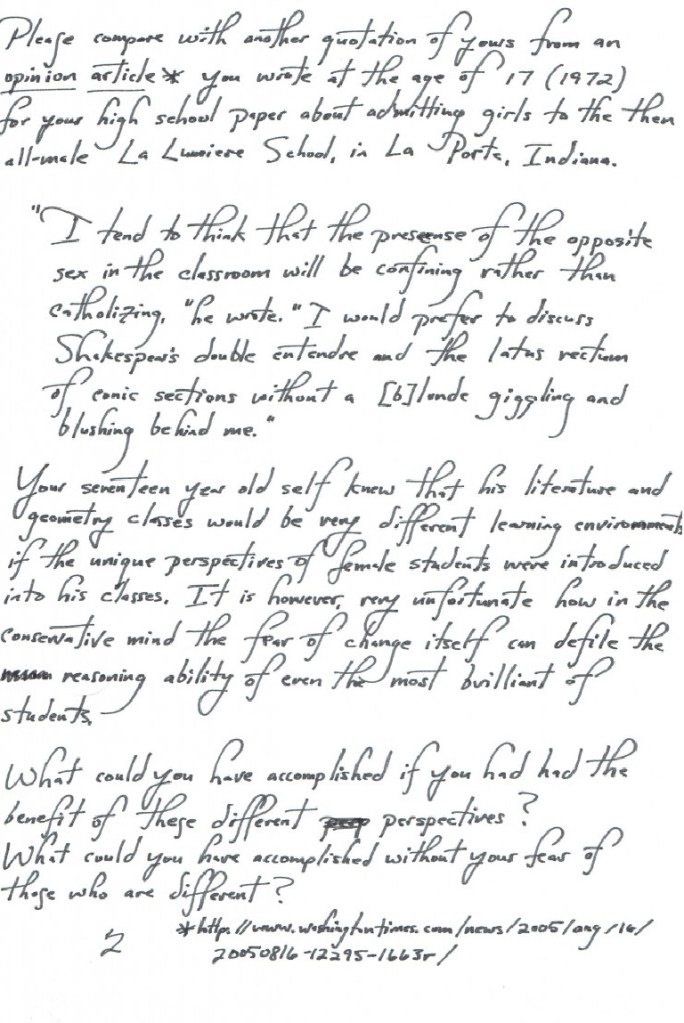 Please compare with another quotation of yours from an
opinion article* you wrote at the age of 17 (1972)
for your high school paper about admitting girls to the then
all-male La Lumiere School, in La Porte, Indiana.
"I tend to think that the presense of the opposite
sex in the classroom will be confining rather than
catholizing, "he wrote. "I would prefer to discuss
Shakespear's double entendre and the latus rectum
of conic sections without a [b]londe giggling and
blushing behind me."
Your seventeen year old self knew that his literature and
geometry classes would be very different learning environments
if the unique perspectives of female students were introduced
into his classes. It is however, very unfortunate how in the
conservative mind the fear of change itself can defile the
reasoning ability of even the most brilliant of
students.
What could you have accomplished if you had had the
benefit of these different perspectives?
What could you have accomplished without your fear of
those who are different?
2 *http://www.washingtontimes.com/news/2005/aug/16/
20050816-12295-1663r/